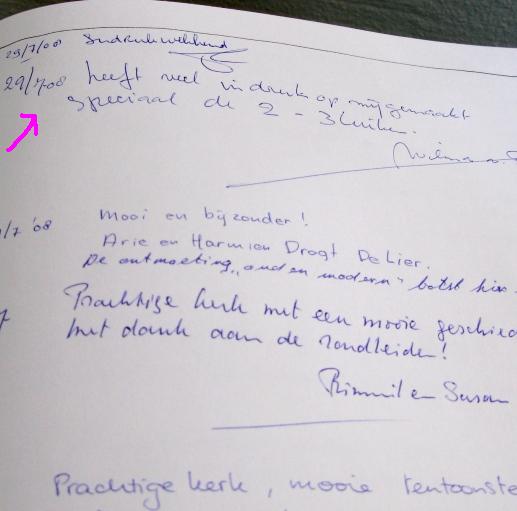 29/7/08 Indrukwekkend
29/7 08 heeft veel indruk op mij gemaakt
speciaal de 2 - 3 luiken.
/7 '08 Mooi en bijzonder!
Arie en Harmien Drogt De Lier.
De ontmoeting "oud en modern" botst hier
Prachtige kerk met een mooie geschied
met dank aan de rondleider!
en Susan
Prachtige kerk, mooie tentoonste